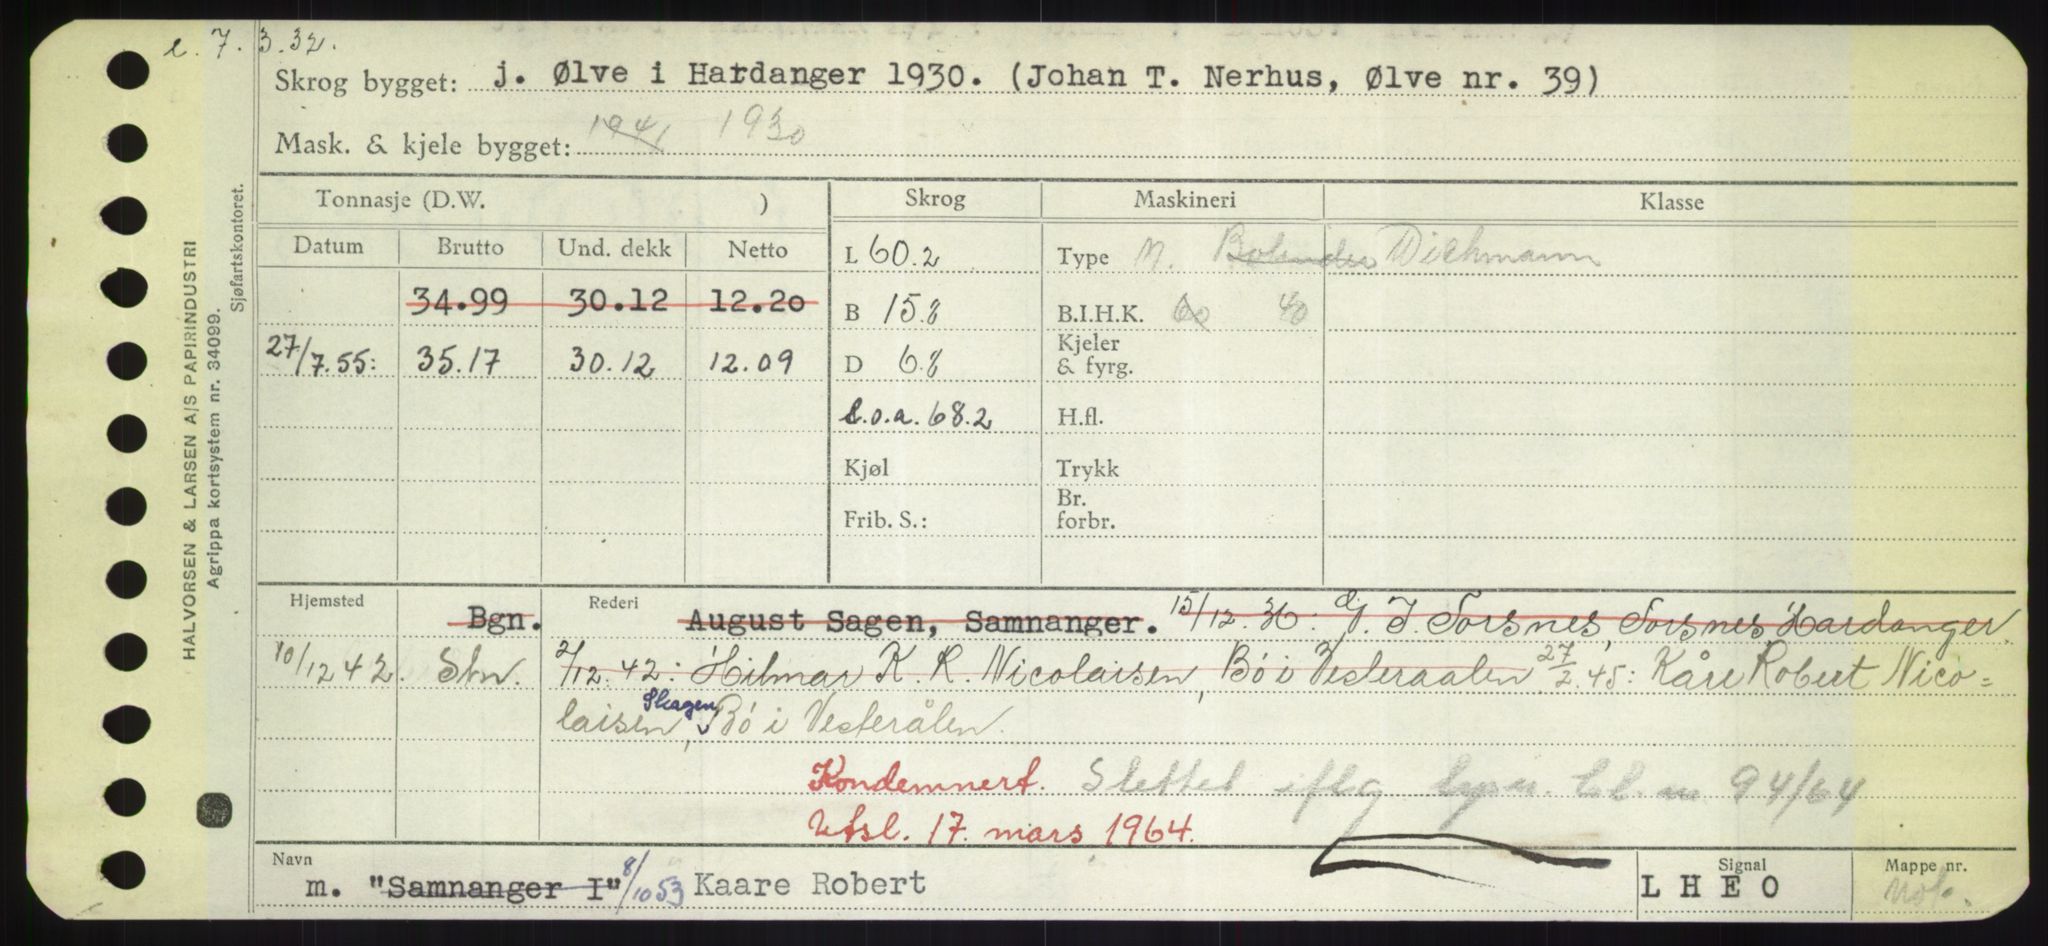 e. 7. 3.32.
Skrog bygget: j. Ølve i Hardanger 1930. (Johan T. Nerhus, Ølve nr. 39)
Mask. & kjele bygget: 1941 1930
Tonnasje (D.W. ) Skrog Maskineri Klasse
Datum Brutto Und. dekk Netto L 60.2 Type M. Bolinder Wichmann
34.99 30.12 12.20 B 15.8 B.I.H.K. 60 40
27/7.55: 35.17 30.12 12.09 D 6.8 Kjeler & fyrg.
l.o.a. 68.2 H.fl.
Kjøl Trykk
Frib. S.: Br. forbr.
Hjemsted Bgn. Rederi August Sagen, Samnanger. 15/12.36: J. Torsnes, Torsnes Hardanger.
10/12 42. Stn. 2/12.42: Hilmar K. R. Nicolaisen, Bø i Vesteraalen 27/2.45: Kåre Robert Nico=
laisen, Skagen, Bø i Vesterålen.
Kondemnert. Slettet iflg bl. m 94/64
Utsl. 17. mars 1964.
Navn m. "Samnanger I" 8/10 53 Kaare Robert Signal L H E O Mappe nr.
HALVORSEN & LARSEN A/S PAPIRINDUSTRI
Agrippa kortsystem nr. 34099.
Sjøfartskontoret.